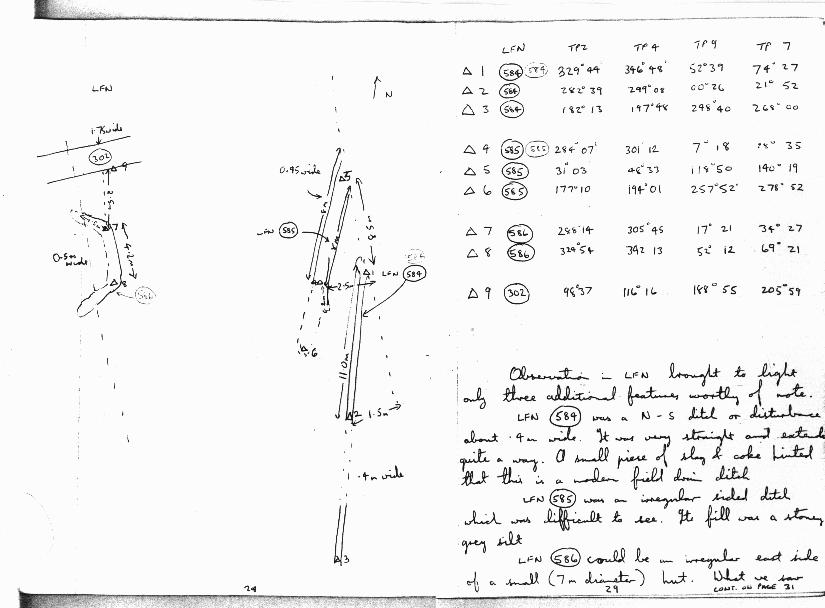 LFN
1.75 wide
302
4
2.5m
7
4.2m
0.5m wide
8
586
N
0.95 wide
5
8m
8m
5.8m
LFN 585
584
1
LFN 584
2.5m
6
11.0m
2
1.5m
.4m wide
3
29
LFN TP2 TP4 TP9 TP7
△ 1 584 584 329°44 346°48' 52°39 74°27
△ 2 584 282°39 299°08 00°26 21°52
△ 3 584 182°13 197°48 298°40 268°00
△ 4 585 585 284°07' 301 12 7°18 35
△ 5 585 31°03 48°33 118°50 140°19
△ 6 585 177°10 194°01 257°52' 278°52
△ 7 586 288°14 305°45 17°21 34°27
△ 8 586 324°54 342 13 52°12 69°21
△ 9 302 98°37 116°16 188°55 205°59
Observation in LFN brought to light
only three additional features worthy of note.
LFN 584 was a N-S ditch or disturbance
about .4m wide. It was very straight and extends
quite a way. A small piece of slag & coke hinted
that this is a modern field drain ditch
LFN 585 was an irregular sided ditch
which was difficult to see. Its fill was a stoney
grey silt
LFN 586 could be an irregular east side
of a small (7m diameter) hut. What we saw
29 CONT. ON PAGE 31